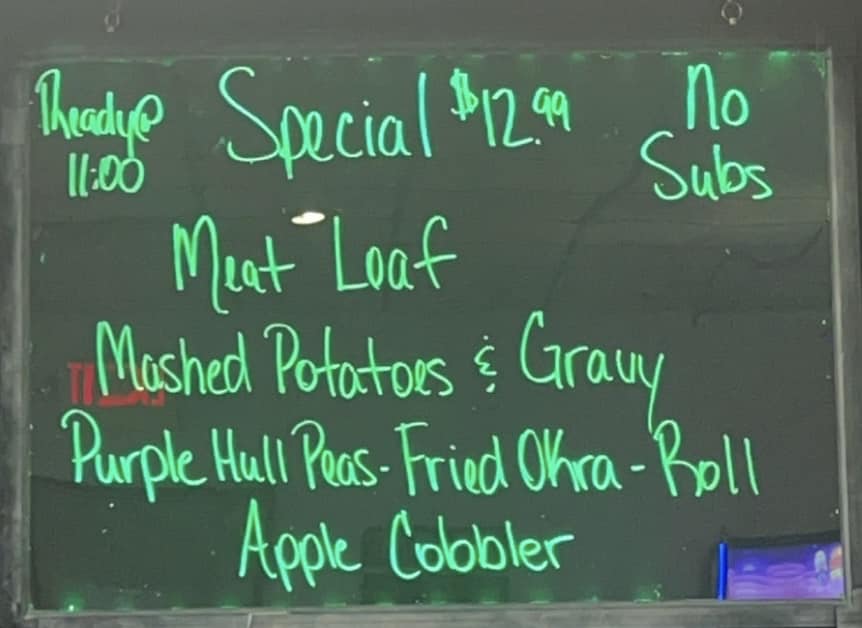 Ready@ 11:00
Special $12.99
No Subs
Meat Loaf
Mashed Potatoes & Gravy
Purple Hull Peas - Fried Okra - Roll
Apple Cobbler